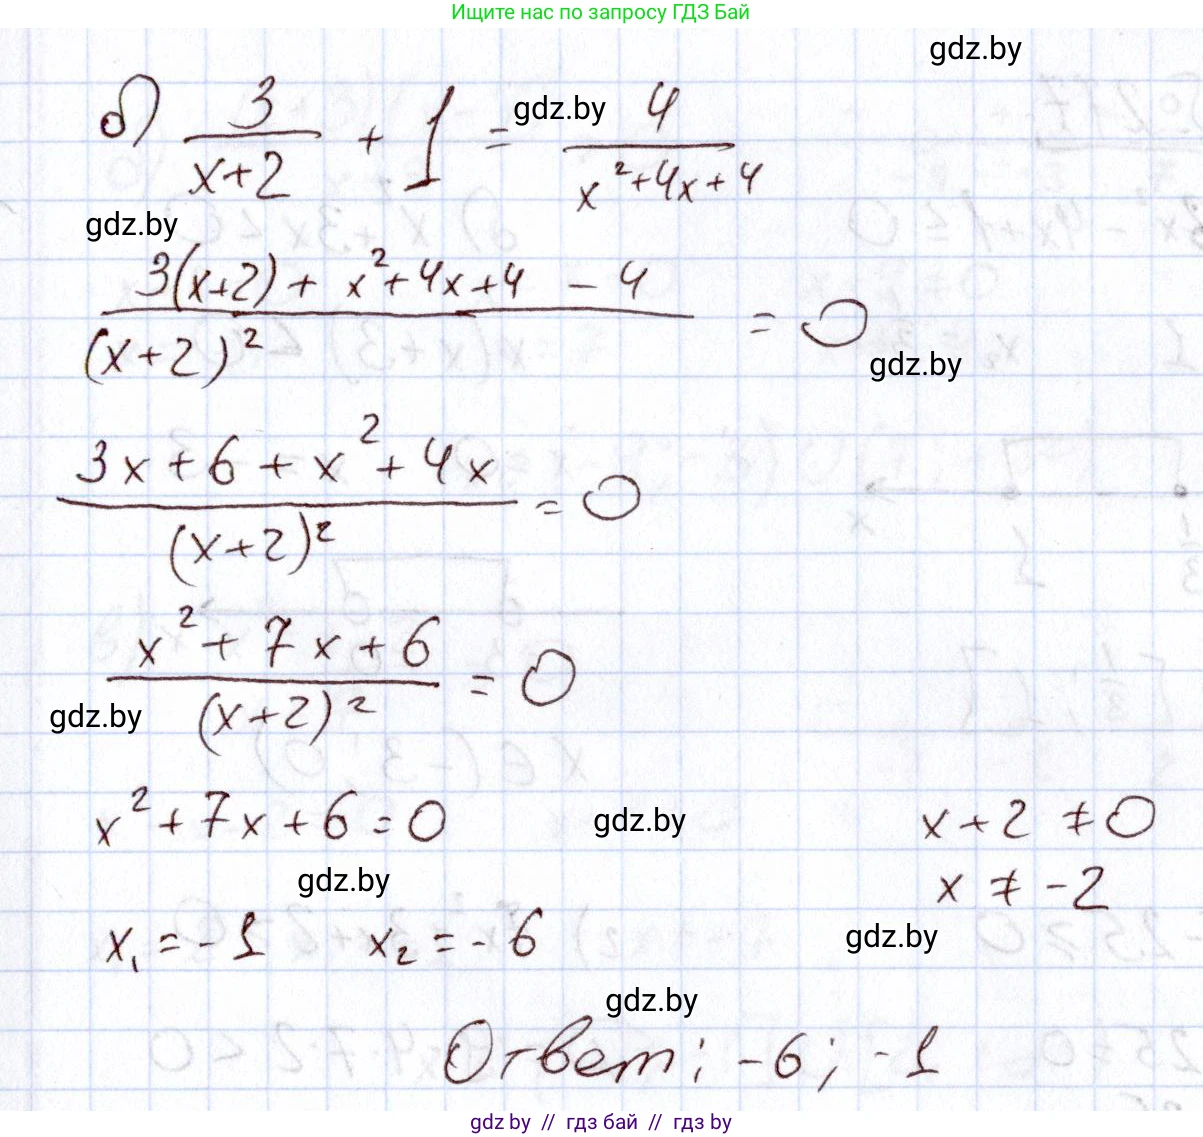 Ищите нас по запросу ГДЗ Бай
gdz.by
б) 3/(x+2) + 1 = 4/(x²+4x+4)
gdz.by
gdz.by
(3(x+2) + x²+4x+4 - 4)/(x+2)² = 0
gdz.by
(3x+6+x²+4x)/(x+2)² = 0
(x²+7x+6)/(x+2)² = 0
gdz.by
x²+7x+6=0 gdz.by x+2≠0
gdz.by x≠-2
x₁=-1 x₂=-6 gdz.by
gdz.by
Ответ: -6; -1
gdz.by // гдз бай // гдз by